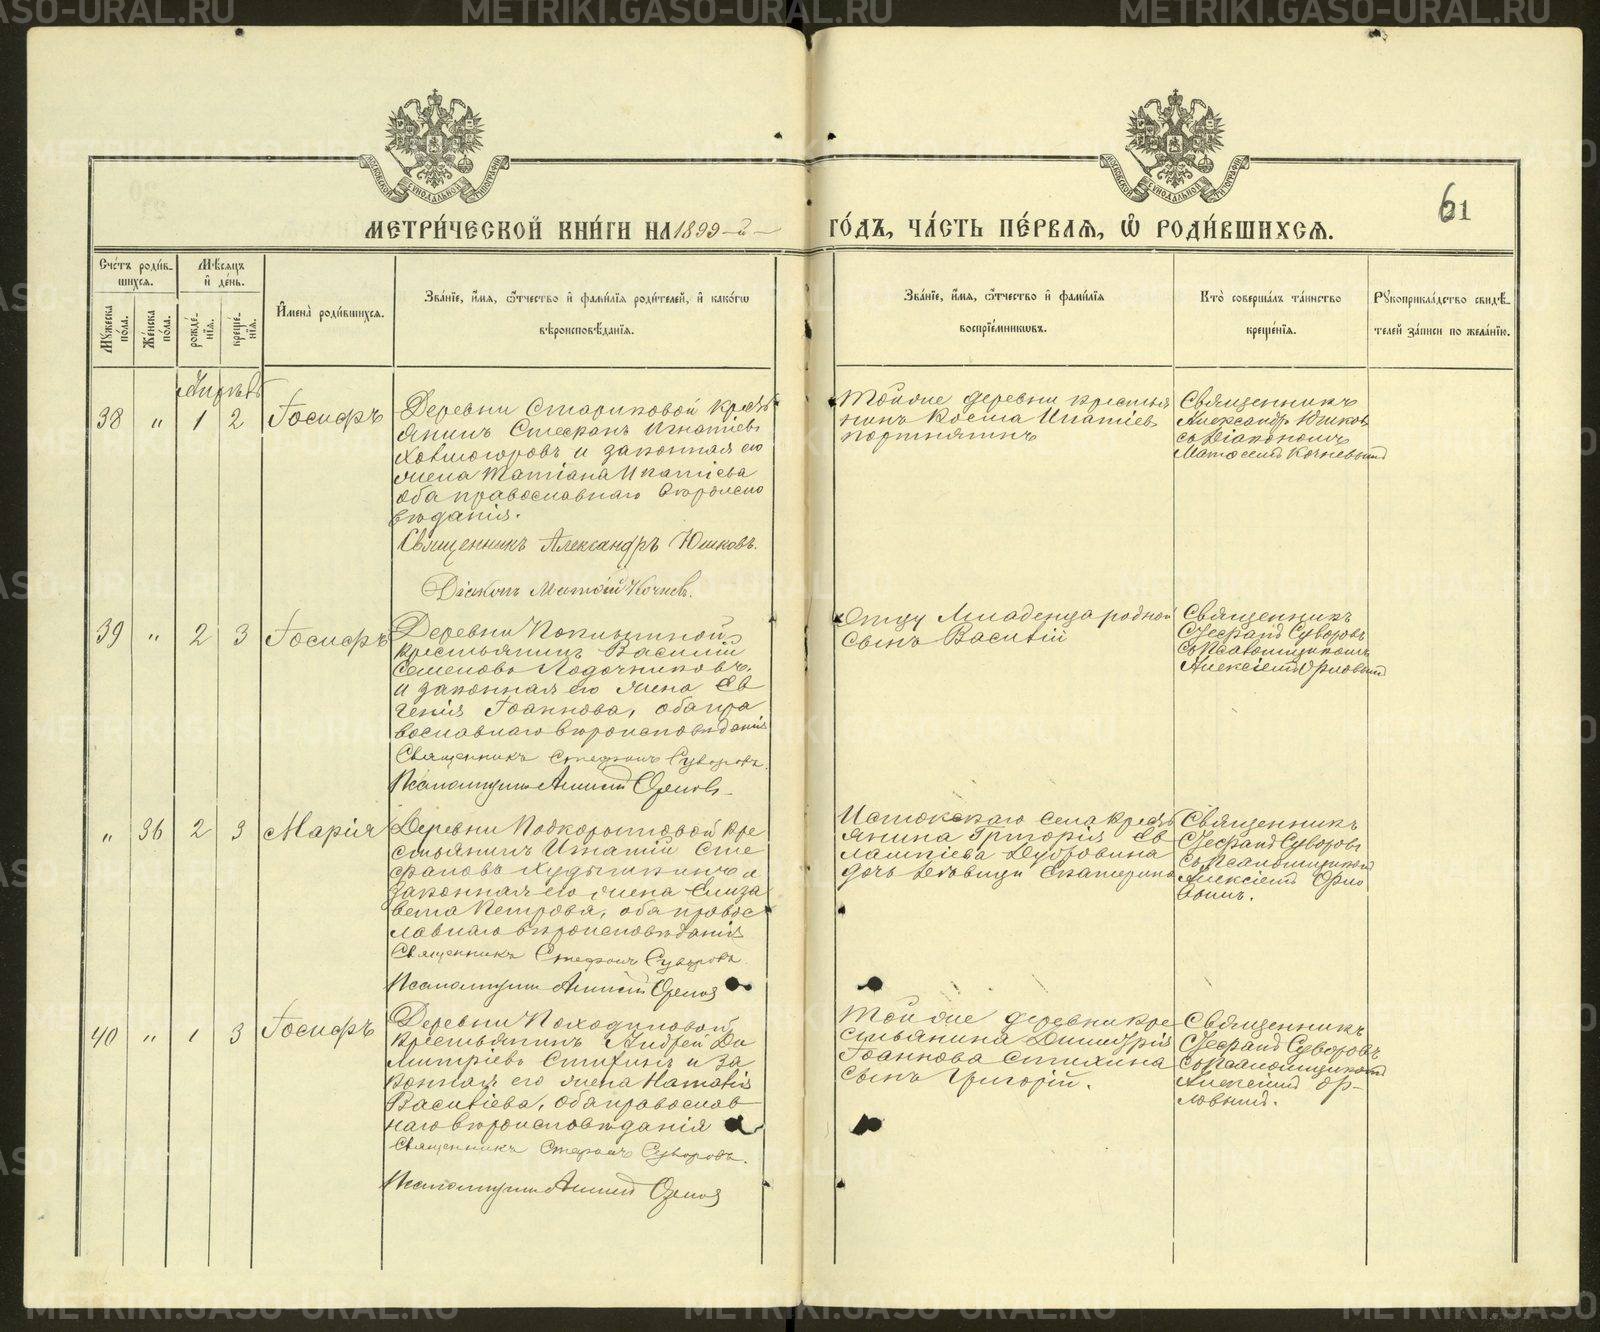 МЕТРИ́ЧЕСКОЙ КНИ́ГИ НА 1899-й
ГО́ДЪ, ЧА́СТЬ ПЕ́РВАЯ, Ѡ РОДИ́ВШИХСЯ.
61
Сче́тъ роди́в-
шихся.
Мѣ́сяцъ
и҆ де́нь.
Мꙋ́жеска
по́ла.
Же́нска
по́ла.
рожде́-
нїя.
креще́-
нїя.
И҆мена̀ роди́вшихся.
Зва́нїе, и҆́мя, ѻ҆́тчество и҆ фами́лїя роди́телей, и҆ како́гѡ
вѣроисповѣ́данїя.
Зва́нїе, и҆́мя, ѻ҆́тчество и҆ фами́лїя
воспрїе́мникѡвъ.
Кто̀ соверша́лъ та́инство
креще́нїя.
Рꙋкоприкла́дство свидѣ́-
телей за́писи по жела́нїю.
38 " 1 2 Іосифъ
Деревни Стариковой кресть
янинъ Стефанъ Игнатіевъ
и законная его
жена Татіана Ипатіева
оба православнаго вѣроиспо
вѣданія.
Священникъ Александръ Юшковъ.
Діаконъ Матѳій Кочневъ.
Тойже деревни крестья
нинъ Косма Ипатіев
Священникъ
Александръ Юшков
съ Діакономъ
Матѳеемъ Кочневымъ
39 " 2 3 Іосифъ
Деревни
крестьянинъ Василій
Семеновъ Лодочниковъ
и законная его жена Ев
генія Іоаннова, оба пра
вославнаго вѣроисповѣданія
Священникъ Стефанъ Суворовъ.
Псаломщикъ Алексій Орловъ.
Отцу Младенца родной
сынъ Василій
Священникъ
Стефанъ Суворовъ
съ Псаломщикомъ
Алексіемъ Орловымъ
" 36 2 3 Марія
Деревни Подкоротовой кре
стьянинъ Игнатій Сте
фановъ Худышкинъ и
законная его жена Елиза
вета Петрова, оба правос
лавнаго вѣроисповѣданія
Священникъ Стефанъ Суворовъ.
Псаломщикъ Алексій Орловъ
Истокскаго села кресть
янина Григорія Ев
лампіева Дубровина
дочь девица Екатерина
Священникъ
Стефанъ Суворовъ
съ Псаломщикомъ
Алексіемъ Орло
вымъ.
40 " 1 3 Іосифъ
Деревни Походиловой
крестьянинъ Андрей Ди
митріевъ Стихинъ и за
конная его жена Наталія
Василіева, оба православ
наго вѣроисповѣданія
Священникъ Стефанъ Суворовъ.
Псаломщикъ Алексій Орловъ
Тойже деревни кре
стьянина Димитрія
Іоаннова Стихина
сынъ Григорій.
Священникъ
Стефанъ Суворовъ
съ Псаломщикомъ
Алексіемъ Ор-
ловымъ.
METRIKI.GASO-URAL.RU